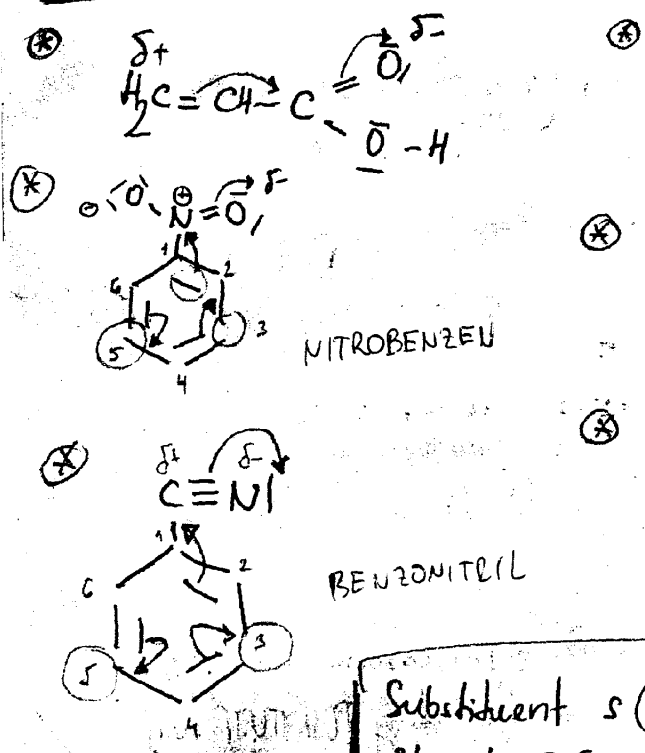 δ+ δ-
H₂C = CH - C = O
O - H
⊖ O N ⊕ = O δ-
1
6 2
5 3
4
NITROBENZEN
δ+ δ-
C ≡ N
1
6 2
5 3
4
BENZONITRIL
Substituent s (